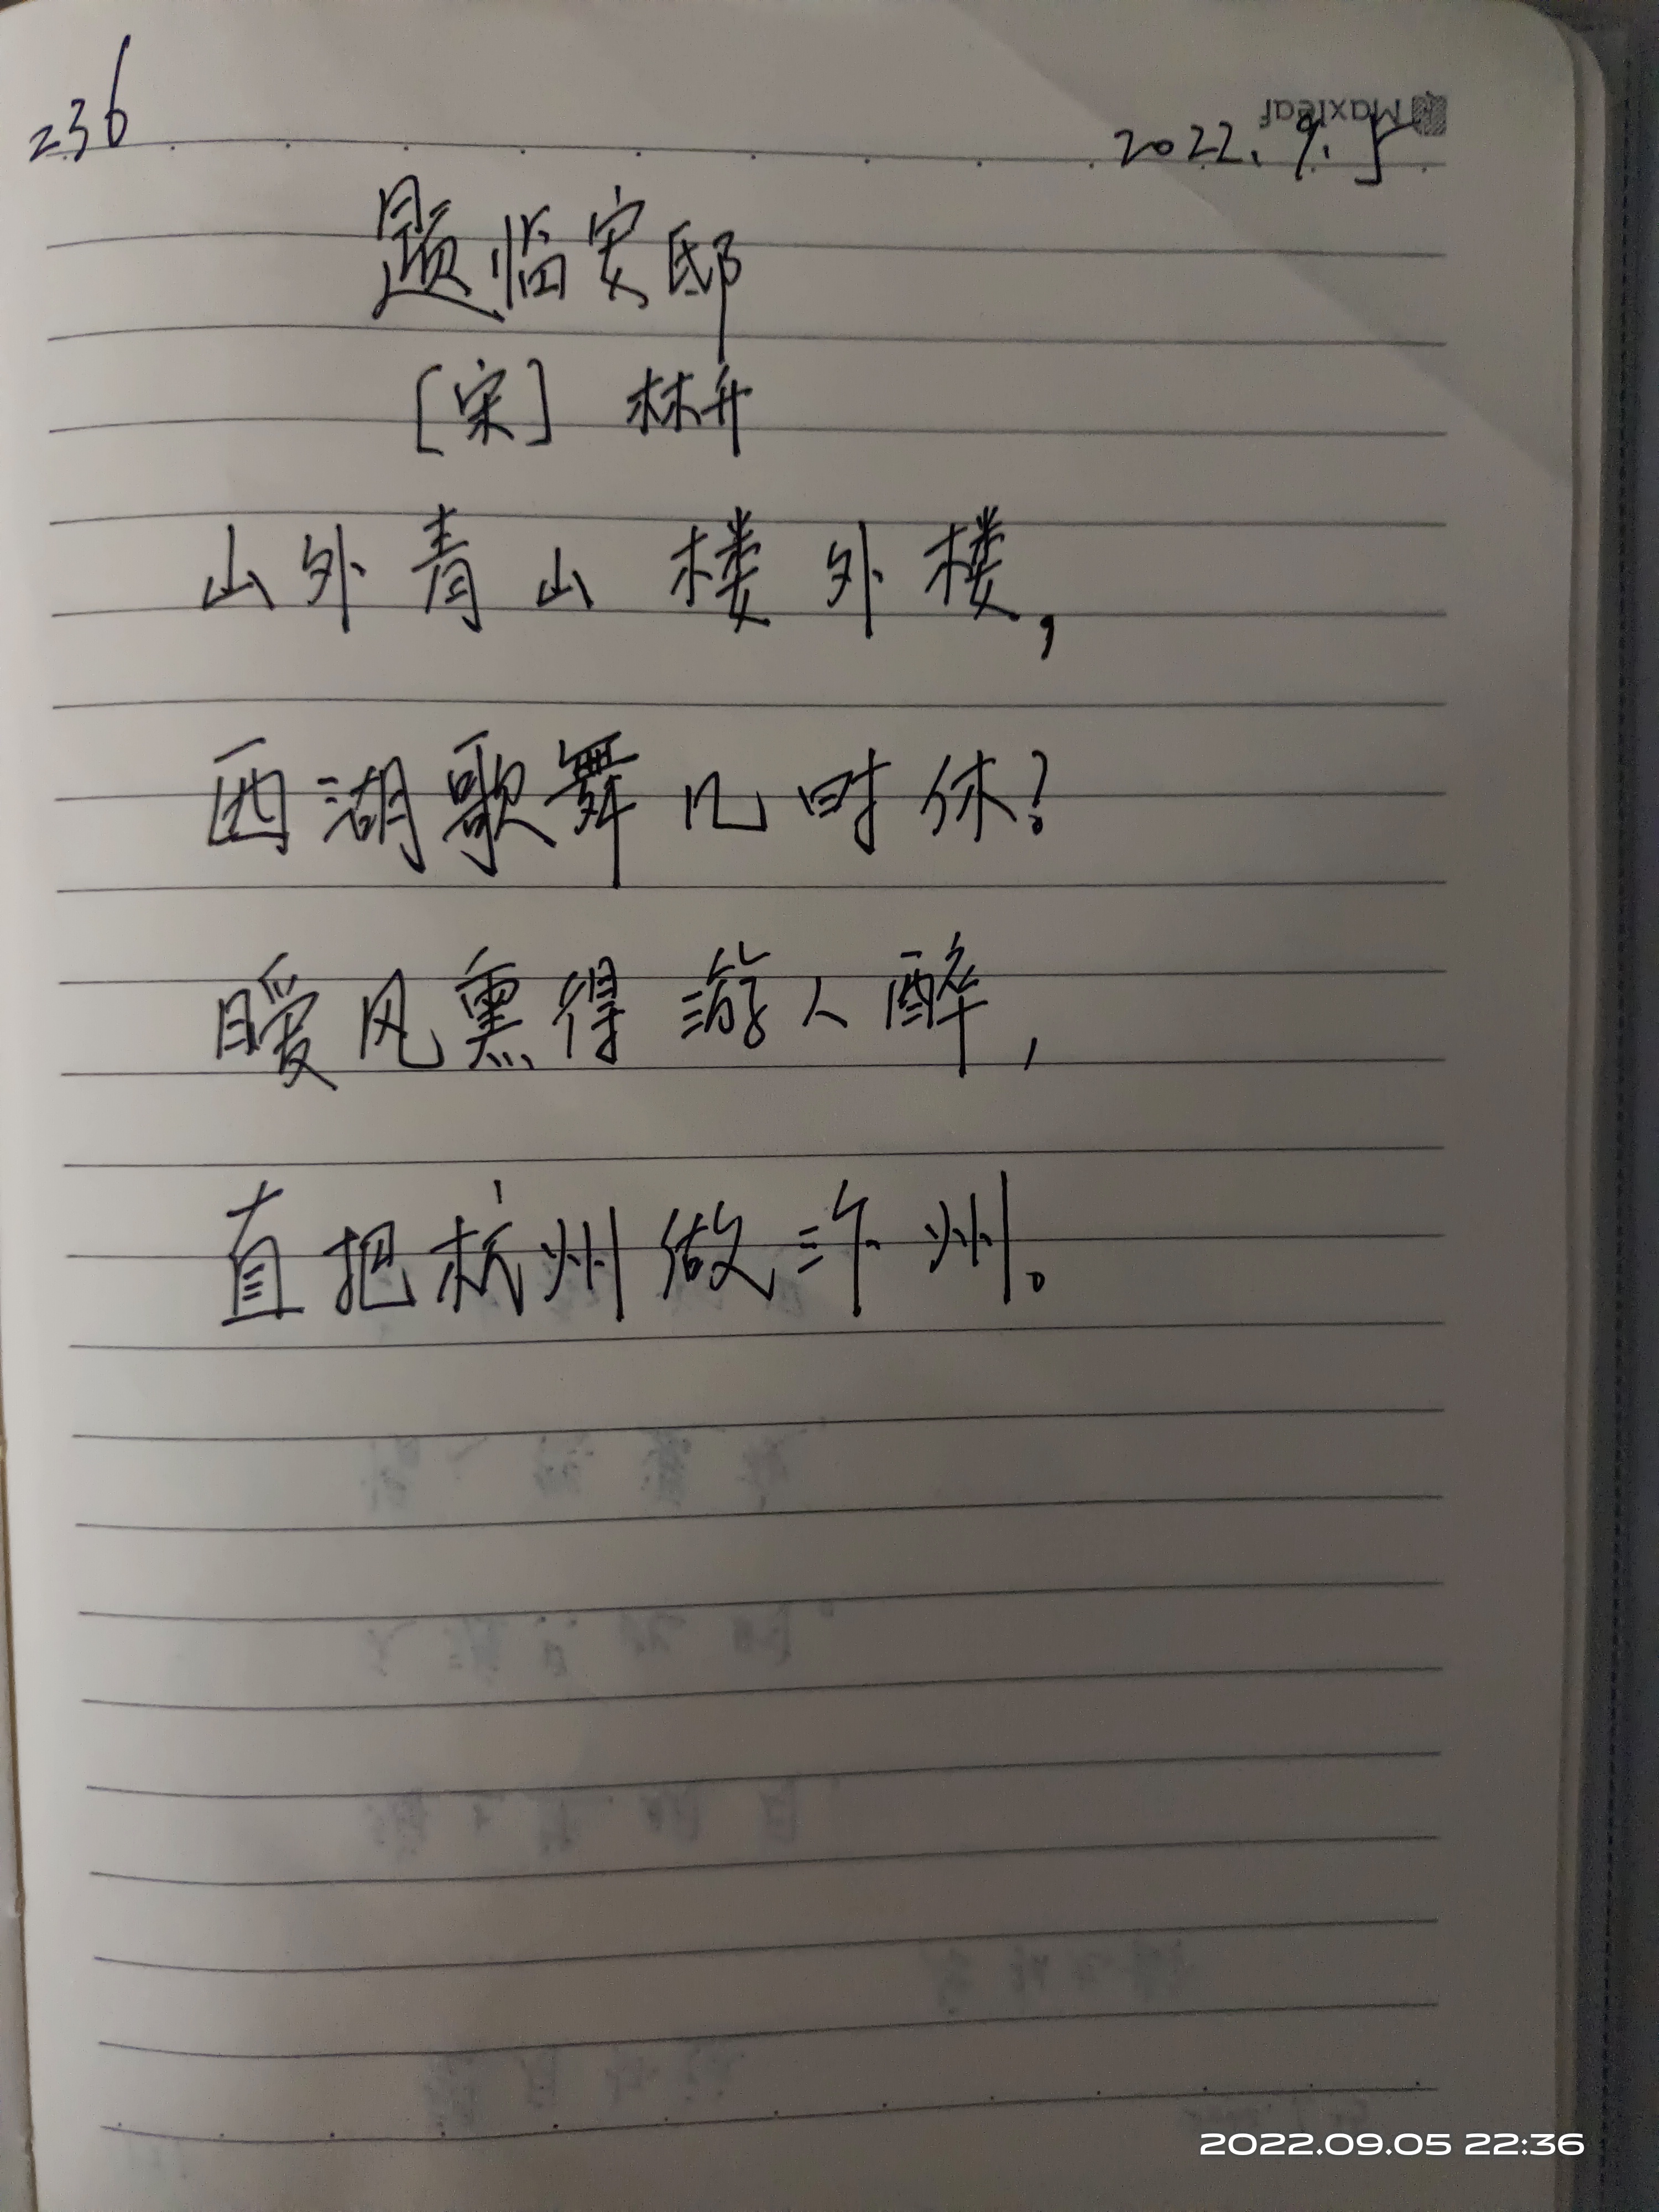 236
Maxleaf
2022.9.5
题临安邸
[宋] 林升
山外青山楼外楼,
西湖歌舞几时休?
暖风熏得游人醉,
直把杭州做汴州。
2022.09.05 22:36